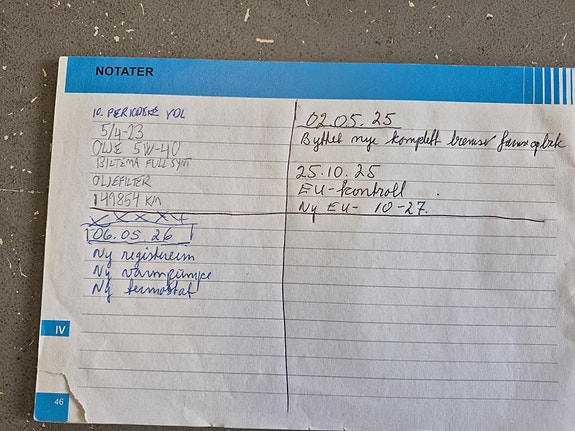 NOTATER
10. PERIODISKE VOL
5/4-23
OLJE 5W-40
BILTEMA FULLSYNT
OLJEFILTER
149854 KM
XXXXX
06.05.26
Ny registreim
Ny vannpumpe
Ny termostat
02.05.25
Byttet nye komplett bremser foran og bak
25.10.25
EU-kontroll
Ny EU- 10-27.
IV
46